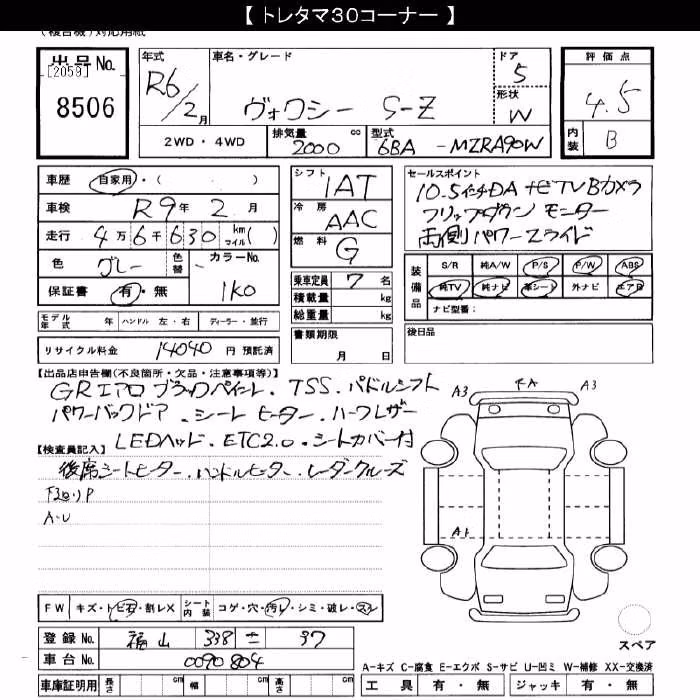 【トレタマ30コーナー】
(複合機)対応用紙
出品No.
[2059]
8506
年式
R6/2月
車名・グレード
ヴォクシー S-Z
ドア
5
形状
W
評価点
4.5
2WD・4WD
排気量 cc
2000
型式
6BA - MZRA90W
内装
B
車歴 自家用・( )
車検 R9年 2月
走行 4万6千630 km マイル( )
色 グレー 色替 -
カラーNo.
1K0
保証書 有・無
シフト
IAT
冷房
AAC
燃料
G
乗車定員 7名
積載量 kg
総重量 kg
書類期限
月 日
セールスポイント
10.5インチDA ナビTV Bカメラ
フリップダウンモニター
両側パワースライド
装備品
S/R 純A/W P/S P/W ABS
純TV 純ナビ 革シート 外ナビ エアB
ナビ型番:
モデル年式 年 ハンドル 左・右 ディーラー・並行
リサイクル料金 14040 円 預託済
後日品
【出品店申告欄(不良箇所・欠品・注意事項等)】
GRエアロ ブラックペイント. TSS. パドルシフト
パワーバックドア. シートヒーター. ハーフレザー
LEDヘッド. ETC2.0. シートカバー付
【検査員記入】
後席シートヒーター. ハンドルヒーター. レーダークルーズ
A-U
A3
A3
A1
FW キズ・トビ石・割レX
シート内装 コゲ・穴・汚レ・シミ・破レ・スレ
登録No. 福山 338 37
車台No. 0090804
車庫証明用 長さ cm 幅 cm 高さ cm
スペア
A―キズ C―腐食 E―エクボ S―サビ U―凹ミ W―補修 XX―交換済
工具 有・無 ジャッキ 有・無